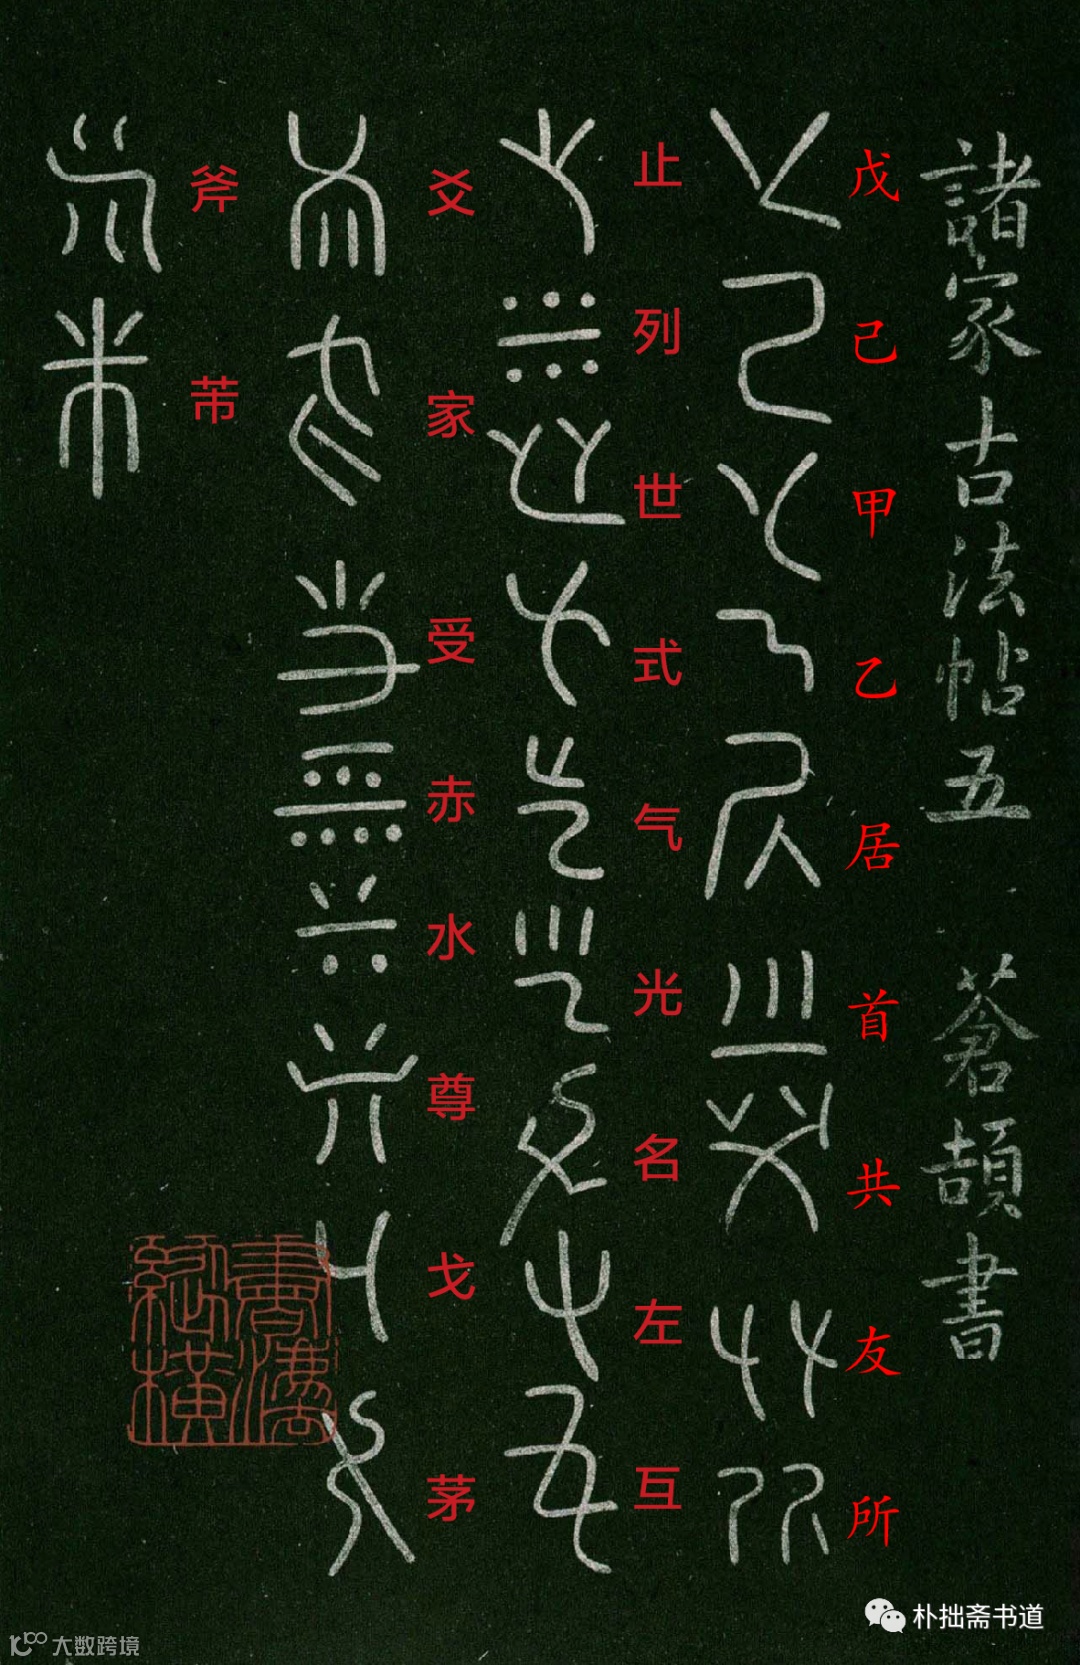 諸家古法帖五 蒼頡書
戊己甲乙居首共友所
止列世式气光名左互
爻家受赤水尊戈茅
斧芾
書法縱橫
朴拙斋书道
大数跨境